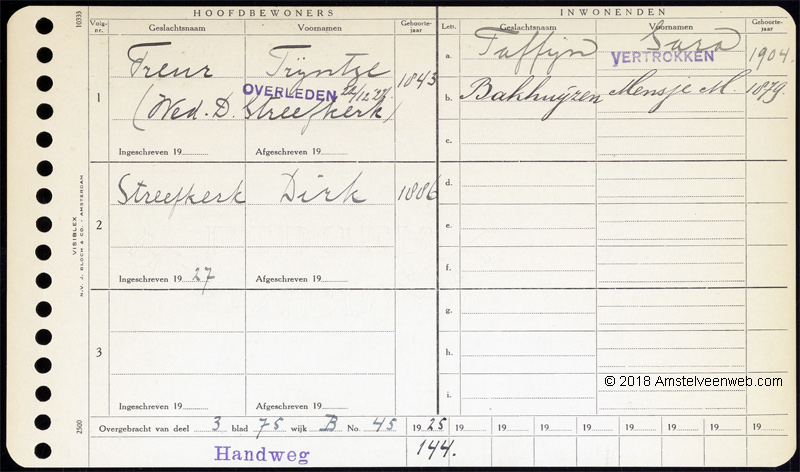 HOOFDBEWONERS
INWONENDEN
Volg-nr. Geslachtsnaam Voornamen Geboorte-jaar
Lett. Geslachtsnaam Voornamen Geboorte-jaar
1 Treur Trijntje 1843
OVERLEDEN 22/12 '27
(Wed. D. Streefkerk)
Ingeschreven 19 Afgeschreven 19
2 Streefkerk Dirk 1886
Ingeschreven 19 27 Afgeschreven 19
3
Ingeschreven 19 Afgeschreven 19
a. Taffijn Sara 1904.
VERTROKKEN
b. Bakhuijzen Mensje M. 1879.
c.
d.
e.
f.
g.
h.
i.
Overgebracht van deel 3 blad 75 wijk B No. 45 19 25 19 19 19 19 19 19 19 19
Handweg 144.
10333
VISIBLEX
N.V. J. BLOCH & CO. - AMSTERDAM
2500
© 2018 Amstelveenweb.com